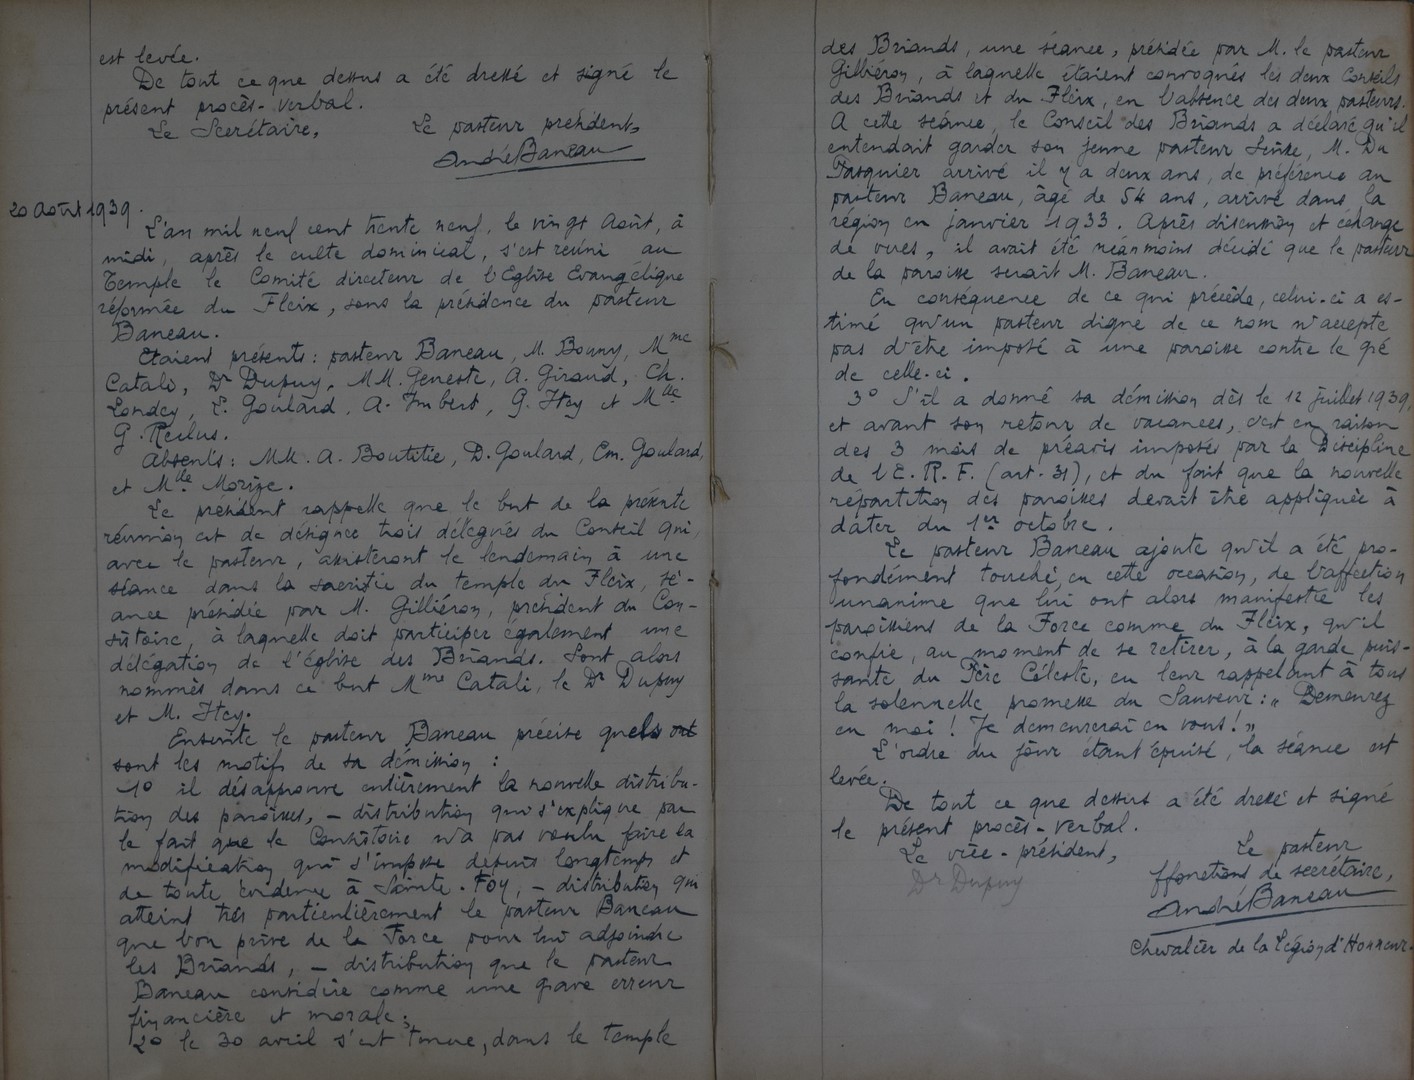 est levée.
De tout ce que dessus a été dressé et signé le
présent procès-verbal.
Le Secrétaire, Le pasteur président,
André Baneau
20 Août 1939.
L'an mil neuf cent trente neuf, le vingt Août, à
midi, après le culte dominical, s'est réuni au
Temple le Comité directeur de l'Eglise Evangélique
réformée du Fleix, sous la présidence du pasteur
Baneau.
Etaient présents : pasteur Baneau, M. Bouny, Mme
Catali, Dr Dupuy, MM. Geneste, A. Giraud, Ch.
Londey, E. Goulard, A. Imbert, G. Itey et Mlle
G. Reclus.
Absents : MM. A. Boutitie, D. Goulard, Em. Goulard,
et Mlle Morize.
Le président rappelle que le but de la présente
réunion est de désigner trois délégués du Conseil qui,
avec le pasteur, assisteront le lendemain à une
séance dans la sacristie du temple du Fleix, sé-
ance présidée par M. Gilliéron, président du Con-
sistoire, à laquelle doit participer également une
délégation de l'église des Briands. Sont alors
nommés dans ce but Mme Catali, le Dr Dupuy
et M. Itey.
Ensuite le pasteur Baneau précise quels ont
sont les motifs de sa démission :
1o il désapprouve entièrement la nouvelle distribu-
tion des paroisses, – distribution qui s'explique par
le fait que le Consistoire n'a pas voulu faire la
modification qui s'impose depuis longtemps et
de toute évidence à Sainte-Foy, – distribution qui
atteint très particulièrement le pasteur Baneau
que l'on prive de la Force pour lui adjoindre
les Briands, – distribution que le pasteur
Baneau considère comme une grave erreur
financière et morale ;
2o le 30 avril s'est tenue, dans le temple
des Briands, une séance, présidée par M. le pasteur
Gilliéron, à laquelle étaient convoqués les deux Conseils
des Briands et du Fleix, en l'absence des deux pasteurs.
A cette séance, le Conseil des Briands a déclaré qu'il
entendait garder son jeune pasteur suisse, M. Du
Pasquier arrivé il y a deux ans, de préférence au
pasteur Baneau, âgé de 54 ans, arrivé dans la
région en janvier 1933. Après discussion et échange
de vues, il avait été néanmoins décidé que le pasteur
de la paroisse serait M. Baneau.
En conséquence de ce qui précède, celui-ci a es-
timé qu'un pasteur digne de ce nom n'accepte
pas d'être imposé à une paroisse contre le gré
de celle-ci.
3o S'il a donné sa démission dès le 12 juillet 1939,
et avant son retour de vacances, c'est en raison
des 3 mois de préavis imposés par la Discipline
de l'E. R. F. (art. 31), et du fait que la nouvelle
répartition des paroisses devait être appliquée à
dater du 1er octobre.
Le pasteur Baneau ajoute qu'il a été pro-
fondément touché, en cette occasion, de l'affection
unanime que lui ont alors manifestée les
paroissiens de la Force comme du Fleix, qu'il
confie, au moment de se retirer, à la garde puis-
sante du Père Céleste, en leur rappelant à tous
la solennelle promesse du Sauveur : „ Demeurez
en moi ! Je demeurerai en vous ! „
L'ordre du jour étant épuisé, la séance est
levée.
De tout ce que dessus a été dressé et signé
le présent procès-verbal.
Le vice-président, Le pasteur
Dr Dupuy ffonctions de secrétaire,
André Baneau
Chevalier de la Légion d'Honneur.